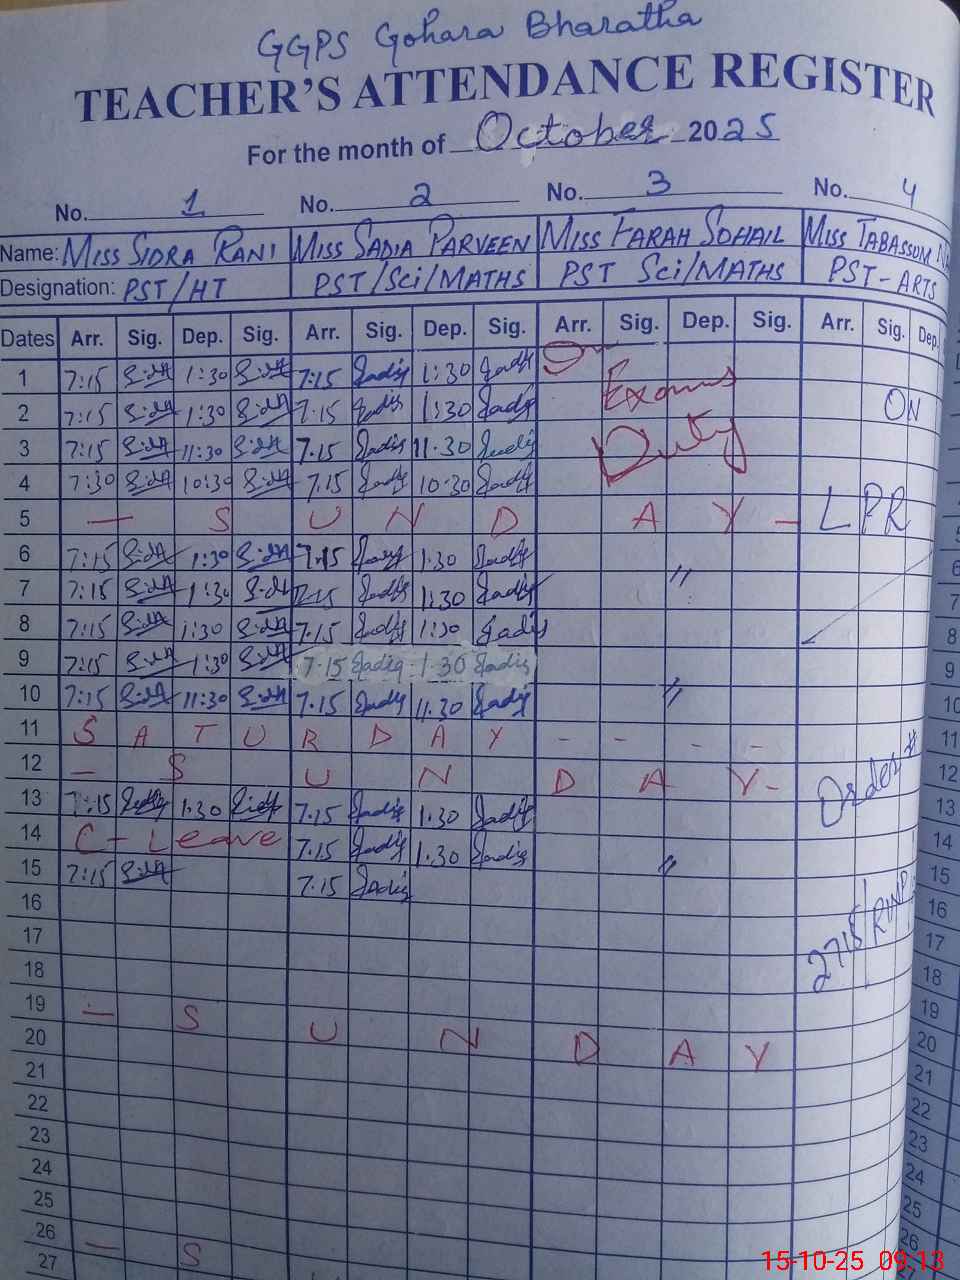 GGPS Gohara Bharatha
TEACHER'S ATTENDANCE REGISTER
For the month of October 2025
No. 1 No. 2 No. 3 No. 4
Name: MISS SIDRA RANI MISS SADIA PARVEEN MISS FARAH SOHAIL MISS TABASSUM
Designation: PST/HT PST/Sci/MATHS PST Sci/MATHS PST-ARTS
Dates Arr. Sig. Dep. Sig. Arr. Sig. Dep. Sig. Arr. Sig. Dep. Sig. Arr. Sig. Dep.
1 7:15 1:30 7:15 Sadia 1:30 Sadia On Exams
2 7:15 1:30 7.15 Sadia 1:30 Sadia ON
3 7:15 11:30 7.15 Sadia 11.30 Sadia Duty
4 7:30 10:30 7.15 Sadia 10.30 Sadia
5 — S U N D A Y — LPR
6 7:15 1:30 7.15 Sadia 1.30 Sadia 6
7 7:15 1:30 7.15 Sadia 1:30 Sadia " 7
8 7:15 1:30 7.15 Sadia 1:30 Sadia 8
9 7:15 1:30 7.15 Sadia 1.30 Sadia 9
10 7:15 11:30 7.15 Sadia 11.30 Sadia " 10
11 S A T U R D A Y - - - - 11
12 — S U N D A Y - Order # 12
13 7:15 1:30 7.15 Sadia 1:30 Sadia 13
14 C-Leave 7.15 Sadia 1.30 Sadia 14
15 7:15 7.15 Sadia " 15
16 2715/ 16
17 17
18 18
19 — S U N D A Y 19
20 20
21 21
22 22
23 23
24 24
25 25
26 — S 26
27
15-10-25 09:13